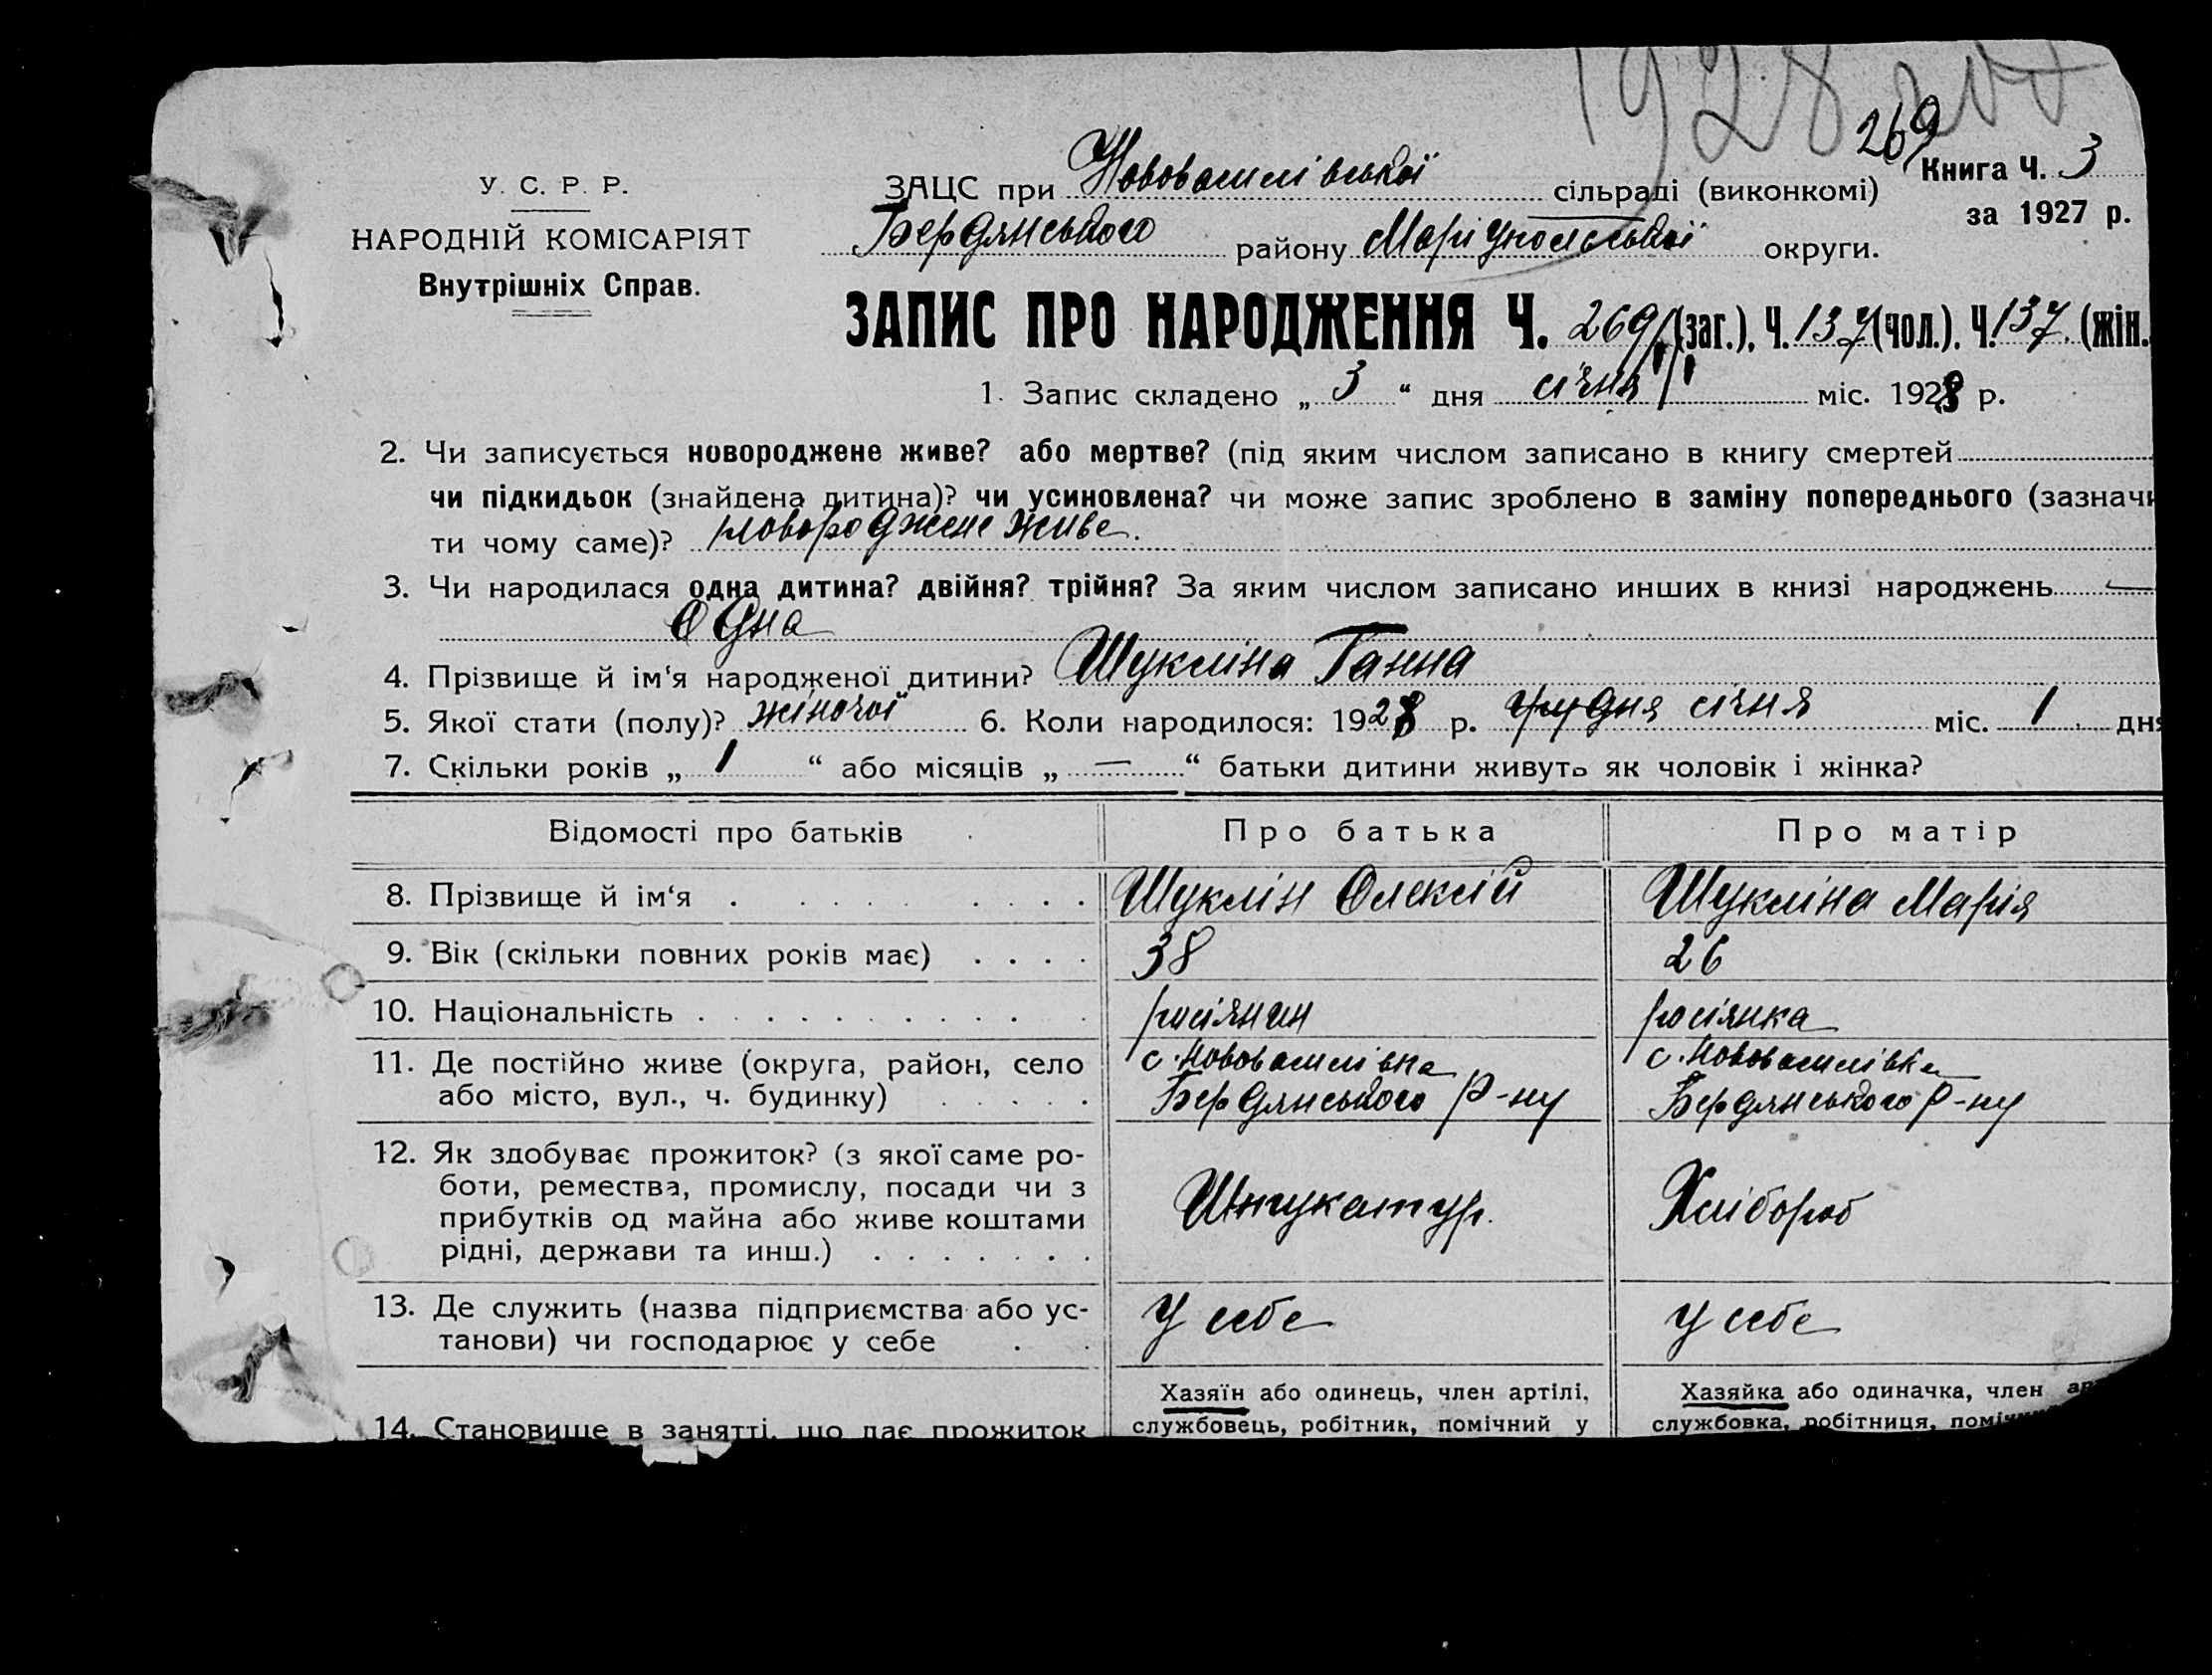 1928 год
269
У. С. Р. Р.
НАРОДНІЙ КОМІСАРІЯТ
Внутрішніх Справ.
ЗАЦС при Нововасилівської сільраді (виконкомі)
Книга Ч. 3
за 1927 р.
Бердянського району Маріупольської округи.
ЗАПИС ПРО НАРОДЖЕННЯ Ч. 269 (заг.), Ч. 137 (чол.), Ч. 137. (жін.
1. Запис складено „ 3 “ дня січня міс. 1928 р.
2. Чи записується новороджене живе? або мертве? (під яким числом записано в книгу смертей
чи підкидьок (знайдена дитина)? чи усиновлена? чи може запис зроблено в заміну попереднього (зазначи
ти чому саме)? новороджене живе.
3. Чи народилася одна дитина? двійня? трійня? За яким числом записано инших в книзі народжень —
Одна
4. Прізвище й ім‘я народженої дитини? Шукліна Ганна
5. Якої стати (полу)? жіночої 6. Коли народилося: 1928 р. грудня січня міс. 1 дня
7. Скільки років „ 1 “ або місяців „ — “ батьки дитини живуть як чоловік і жінка?
Відомості про батьків Про батька Про матір
8. Прізвище й ім‘я Шуклін Олексій Шукліна Марія
9. Вік (скільки повних років має) 38 26
10. Національність росіянин росіянка
11. Де постійно живе (округа, район, село с. Нововасилівка с. Нововасилівка
або місто, вул., ч. будинку) Бердянського р-ну Бердянського р-ну
12. Як здобуває прожиток? (з якої саме ро-
боти, ремества, промислу, посади чи з
прибутків од майна або живе коштами Штукатур. Хлібороб
рідні, держави та инш.)
13. Де служить (назва підприємства або ус- У себе У себе
танови) чи господарює у себе
Хазяїн або одинець, член артілі, Хазяйка або одиначка, член ар
14. Становище в занятті, що дає прожиток службовець, робітник, помічний у службовка, робітниця, поміч